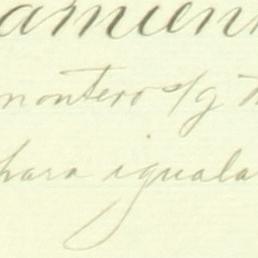 amien
montero s/g
para iguala